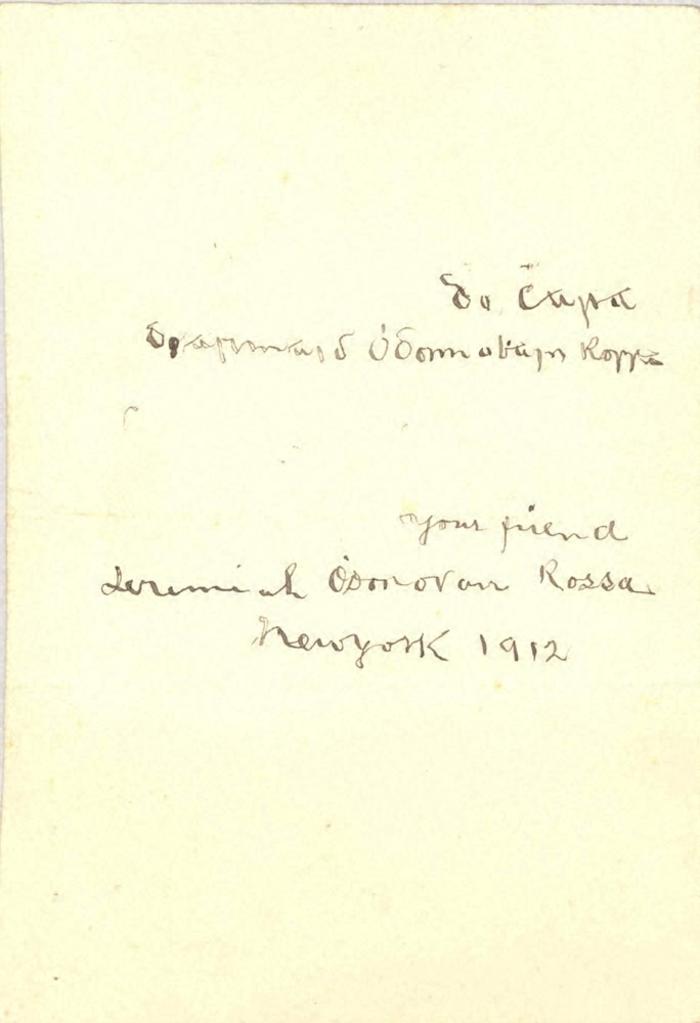 Do Ċara
Diarmaid ÓDonnabain Rossa
your friend
Jeremiah ÓDonovan Rossa
Newyork 1912